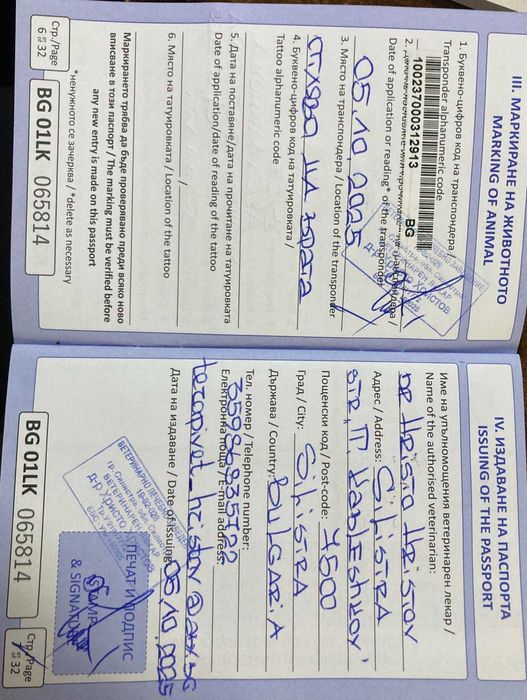 III. МАРКИРАНЕ НА ЖИВОТНОТО
MARKING OF ANIMAL
1. Буквено-цифров код на транспондера /
Transponder alphanumeric code
100237000312913 BG
2.
Date of application or reading* of the transponder
05.10.2025
3. Място на транспондера / Location of the transponder
4. Буквено-цифров код на татуировката /
Tattoo alphanumeric code
5. Дата на поставяне/дата на прочитане на татуировката
Date of application/date of reading of the tattoo
/
6. Място на татуировката / Location of the tattoo
/
Маркирането трябва да бъде проверявано преди всяко ново
вписване в този паспорт / The marking must be verified before
any new entry is made on this passport
*ненужното се зачерква / *delete as necessary
Стр./Page
6 от 32
BG 01LK 065814
IV. ИЗДАВАНЕ НА ПАСПОРТА
ISSUING OF THE PASSPORT
Име на упълномощения ветеринарен лекар /
Name of the authorised veterinarian:
DR HRISTO HRISTOV
Адрес / Address: SiLiSTRA
STR. П.
Пощенски код / Post-code: 7500
Град / City: SiLiSTRA
Държава / Country: BULGARiA
Тел. номер / Telephone number:
Електронна поща / E-mail address:
Дата на издаване / Date of issuing 05.10.2025
ВЕТЕРИНАРЕН ЛЕКАР
Д-р ХРИСТО ХРИСТОВ
ПЕЧАТ И ПОДПИС
STAMP
& SIGNATURE
BG 01LK 065814
Стр./Page
7 от 32